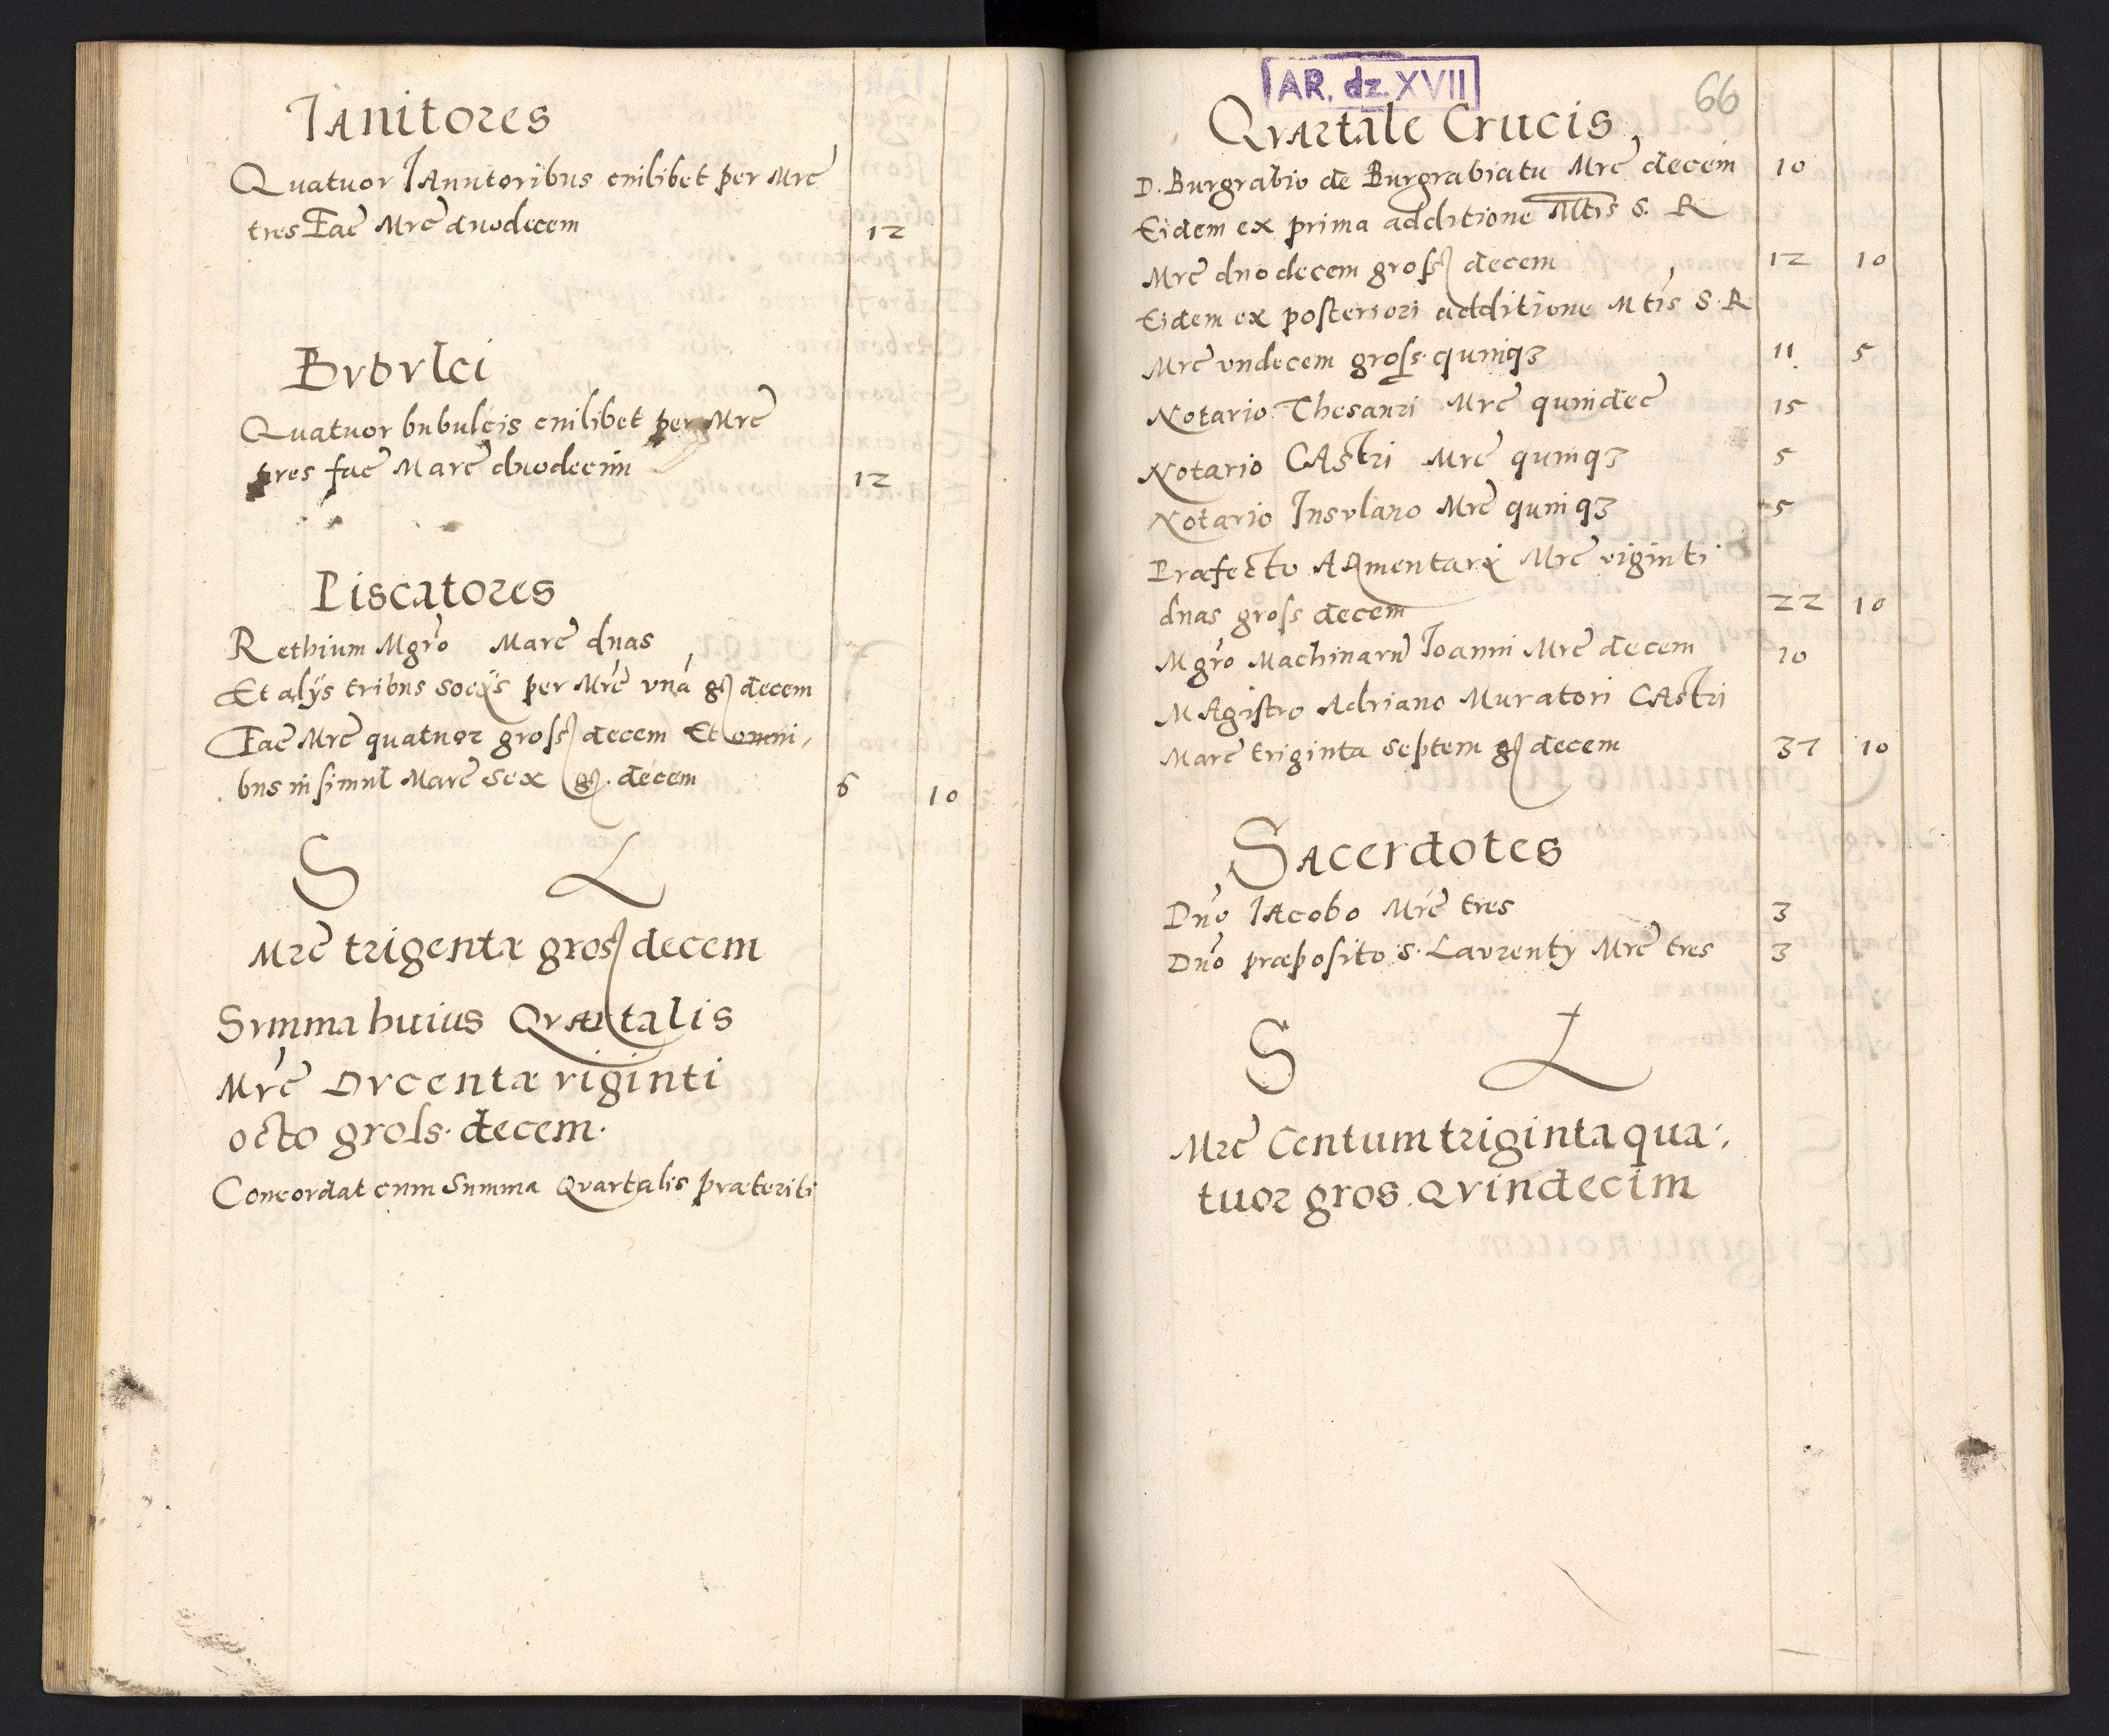 Ianitores
Quatuor Ianitoribus cuilibet per Mrc
tres Fac Mrc duodecem 12
Bvbvlci
Quatuor bubulcis cuilibet per Mrc
tres fac Marc duodecim 12
Piscatores
Rethium Mgro Marc duas
Et alÿs tribus socÿs per Mrc vna gß decem
Fac Mrc quatuor gross decem Et omni,
bus insimul Marc sex gß. decem 6 10
S L
Mrc trigenta gross decem
Svmma huius Qvartalis
Mrc Dvcenta viginti
octo gross. decem.
Concordat cum Summa Qvartalis præteriti
AR. dz. XVII
66
Qvartale Crucis,
D. Burgrabio de Burgrabiatu Mrc decem 10
Eidem ex prima additione Mtis S. R
Mrc duodecem gross decem 12 10
Eidem ex posteriori additione Mtis S. R
Mrc vndecem gross. quinqȝ 11 5
Notario Thesauri Mrc quindec 15
Notario Castri Mrc quinqȝ 5
Notario Insvlano Mrc quinqȝ 5
Præfecto Armentarÿ Mrc viginti
duas gross decem 22 10
Mgro Machinaru Ioanni Mrc decem 10
Magistro Adriano Muratori Castri
Marc triginta septem gß decem 37 10
Sacerdotes
Dno Iacobo Mrc tres 3
Dno præposito S. Lavrentÿ Mrc tres 3
S L
Mrc Centum triginta qua:,
tuor gros Qvindecim